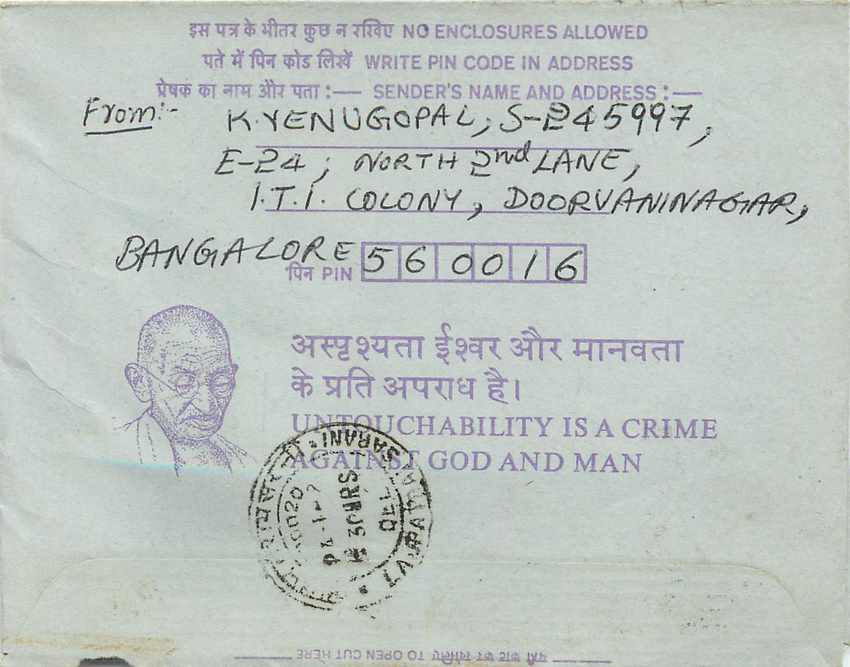 इस पत्र के भीतर कुछ न रखिए NO ENCLOSURES ALLOWED
पते में पिन कोड लिखें WRITE PIN CODE IN ADDRESS
प्रेषक का नाम और पता :— SENDER'S NAME AND ADDRESS :—
From:- K.VENUGOPAL, S-245997,
E-24, NORTH 2nd LANE,
I.T.I. COLONY, DOORVANINAGAR,
BANGALORE
पिन PIN 560016
अस्पृश्यता ईश्वर और मानवता
के प्रति अपराध है।
UNTOUCHABILITY IS A CRIME
AGAINST GOD AND MAN
SARANI
30HRS
TO OPEN CUT HERE